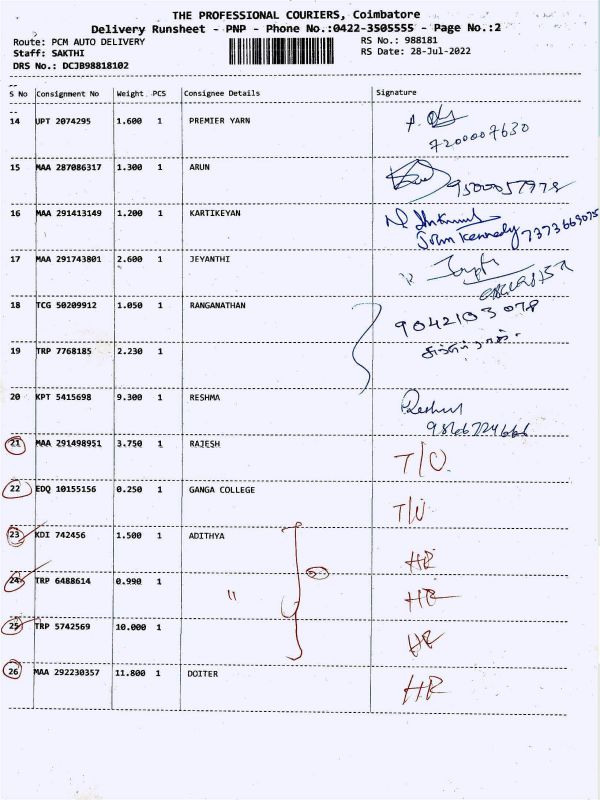 THE PROFESSIONAL COURIERS, Coimbatore
Delivery Runsheet - PNP - Phone No.:0422-3505555 - Page No.:2
Route: PCM AUTO DELIVERY RS No.: 988181
Staff: SAKTHI RS Date: 28-Jul-2022
DRS No.: DCJB98818102
S No Consignment No Weight PCS Consignee Details Signature
14 UPT 2074295 1.600 1 PREMIER YARN
7200007630
15 MAA 287086317 1.300 1 ARUN
9500057978
16 MAA 291413149 1.200 1 KARTIKEYAN
John Kennedy 7373669075
17 MAA 291743801 2.600 1 JEYANTHI
18 TCG 50209912 1.050 1 RANGANATHAN
9042103078
19 TRP 7768185 2.230 1
20 KPT 5415698 9.300 1 RESHMA
Reshma
21 MAA 291498951 3.750 1 RAJESH T/O.
22 EDQ 10155156 0.250 1 GANGA COLLEGE
23 KDI 742456 1.500 1 ADITHYA HR
24 TRP 6488614 0.990 1 " HR
25 TRP 5742569 10.000 1 HR
26 MAA 292230357 11.800 1 DOITER HR